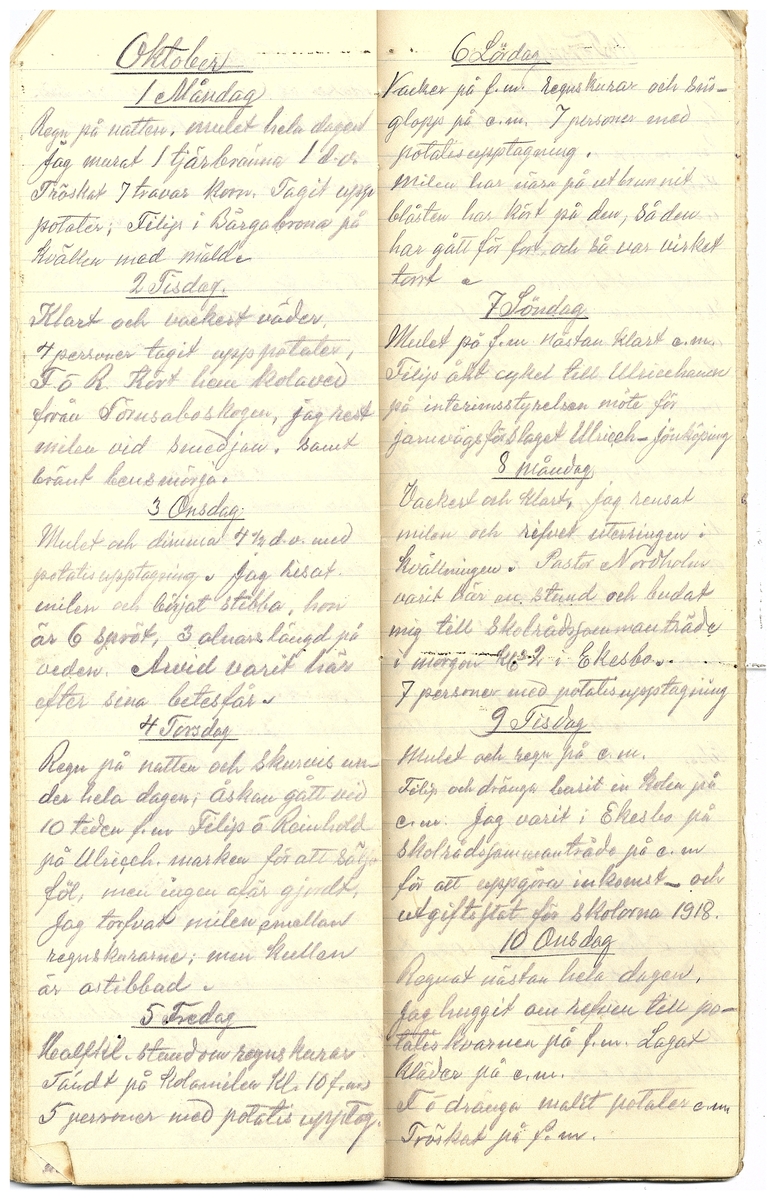 Oktober
1 Måndag
Regn på natten, mulet hela dagen
Jag murat 1 tjärbränna 1 d.v.
Tröskat 7 travar korn. Tagit upp
potater; Filip i Bärgabrona på
kvällen med mäld.
2 Tisdag.
Klart och vackert väder,
4 personer tagit upp potater,
F ö R. Kört hem kolaved
från Törnsaboskogen, jag rest
milen vid smedjan. samt
bränt bensmörja.
3 Onsdag.
Mulet och dimma 4½ d.v. med
potatisupptagning. Jag risat
milen och börjat stibba, hon
är 6 spröt, 3 alnars längd på
veden. Arvid varit här
efter sina betesfår.
4 Torsdag
Regn på natten och skurvis un-
der hela dagen; åskan gått vid
10 tiden f.m Filip ö Reinhold
på Ulriceh. marken för att sälja
föl, men ingen afär gjordt,
Jag torfvat milen emellan
regnskurarne; men kullen
är ostibbad.
5 Fredag
Halfkl. standom regnskurar
Tändt på kolamilen Kl. 10 f.m.
5 personer med potatis upptag.
6 Lördag
Vacker på f.m. regnskurar och snö-
glopp på e.m. 7 personer med
potatisupptagning.
Milen har nära på utbrunnit
blåsten har kört på den, så den
har gått för fort, och så var virket
torrt
7 Söndag
Mulet på f.m nästan klart e.m.
Filip åkt cykel till Ulricehamn
på interimsstyrelsen möte för
jarnvägsförslaget Ulriceh-Jönköping
8 måndag
Vackert och klart, jag rensat
milen och rifvet uterringen i
kvällningen. Pastor Nordholm
varit här en stund och budat
mig till skolrådssammanträde
i morgon Kl 2 i Ekesbo.
7 personer med potatisupptagning
9 Tisdag
Mulet och regn på e.m.
Filip och dränga burit in kolen på
e.m. Jag varit i Ekesbo på
skolrådssammanträde på e.m
för att uppgöra inkomst- och
utgiftsstat för skolorna 1918.
10 Onsdag
Regnat nästan hela dagen,
Jag huggit om refven till po-
tatiskvarnen på f.m. Lagat
kläder på e.m.
F ö dränga malit potater e.m
Tröskat på f.m.